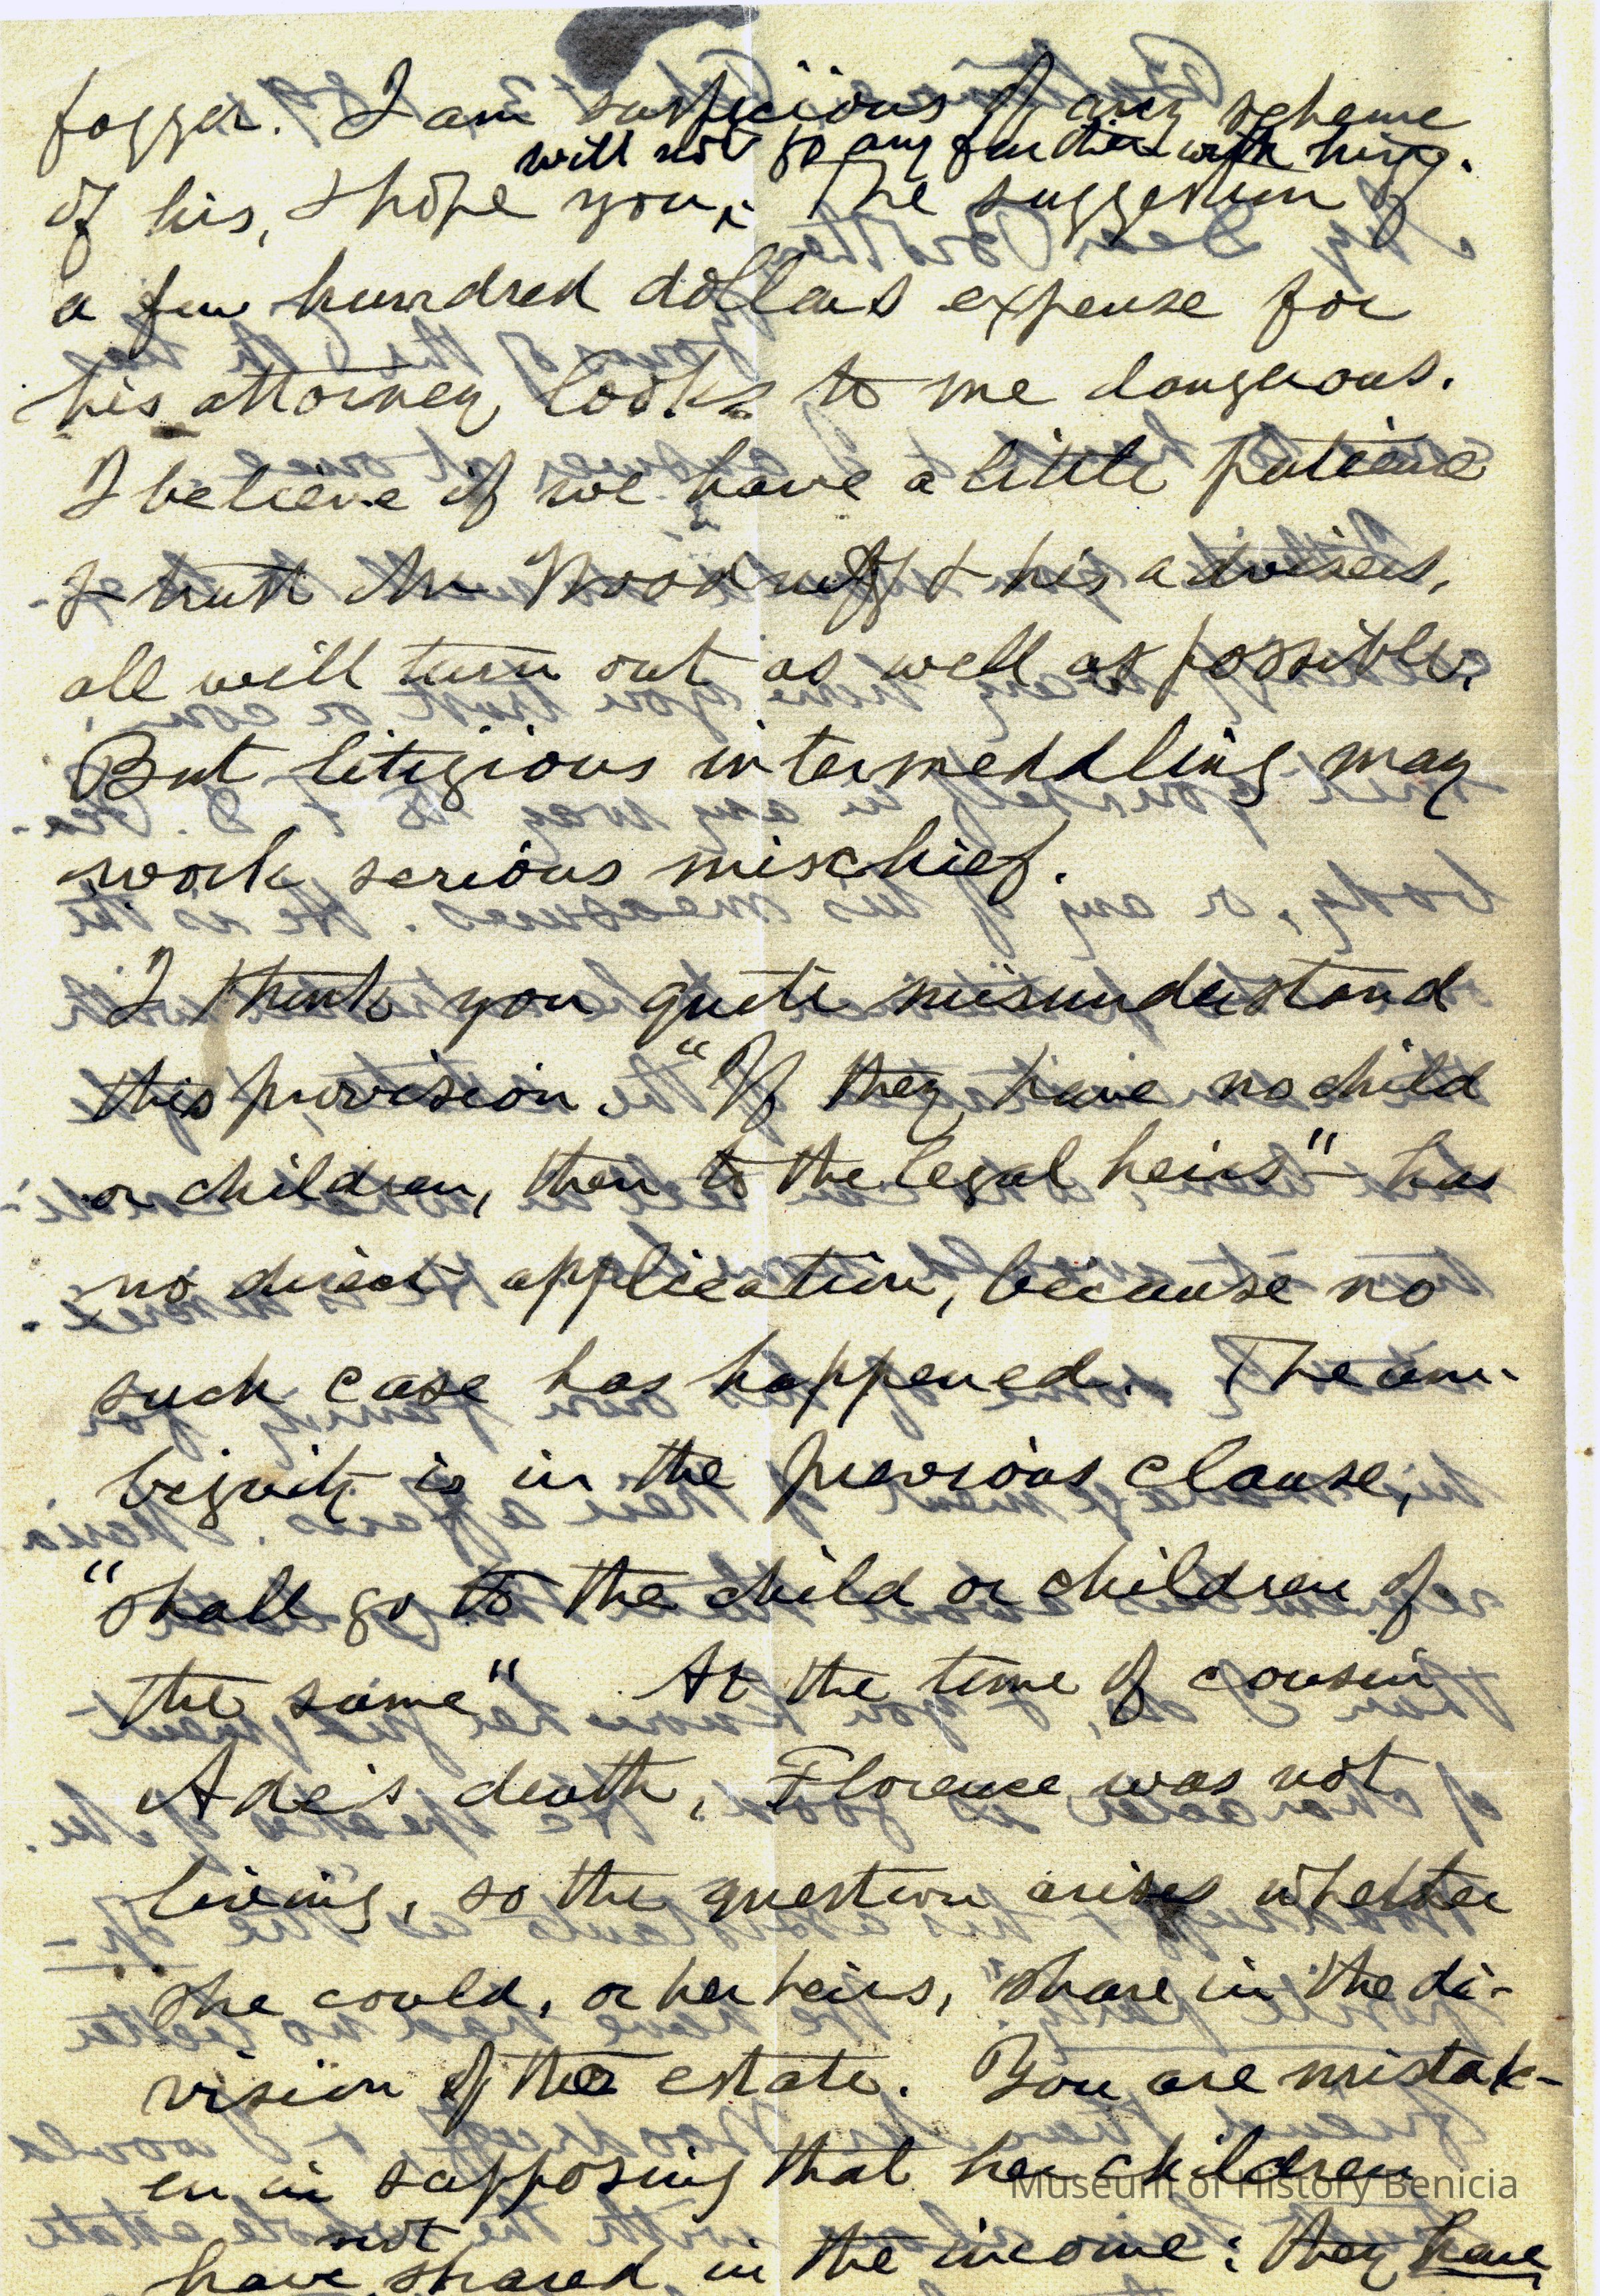 fogger. I am suspicious of any scheme
will not go any further with him.
of his, & hope you ‸. The suggestion of
a few hundred dollars expense for
his attorney, looks to me dangerous.
I believe if we have a little patience
& trust Mr Woodruff & his advisers,
all will turn out as well as possible.
But litigious intermeddling may
work serious mischief.
I think you quite misunderstand
this provision. "If they have no child
or children, then to the legal heirs" - has
no direct application, because no
such case has happened. The am-
biguity is in the previous clause,
"shall go to the child or children of
the same" At the time of cousin
Ade's death, Florence was not
living, so the question arises whether
she could, or her heirs, "share in the di-
vision of the estate. You are mistak-
en in supposing that her children
not
have ‸ shared in the income: they have
Museum of History Benicia